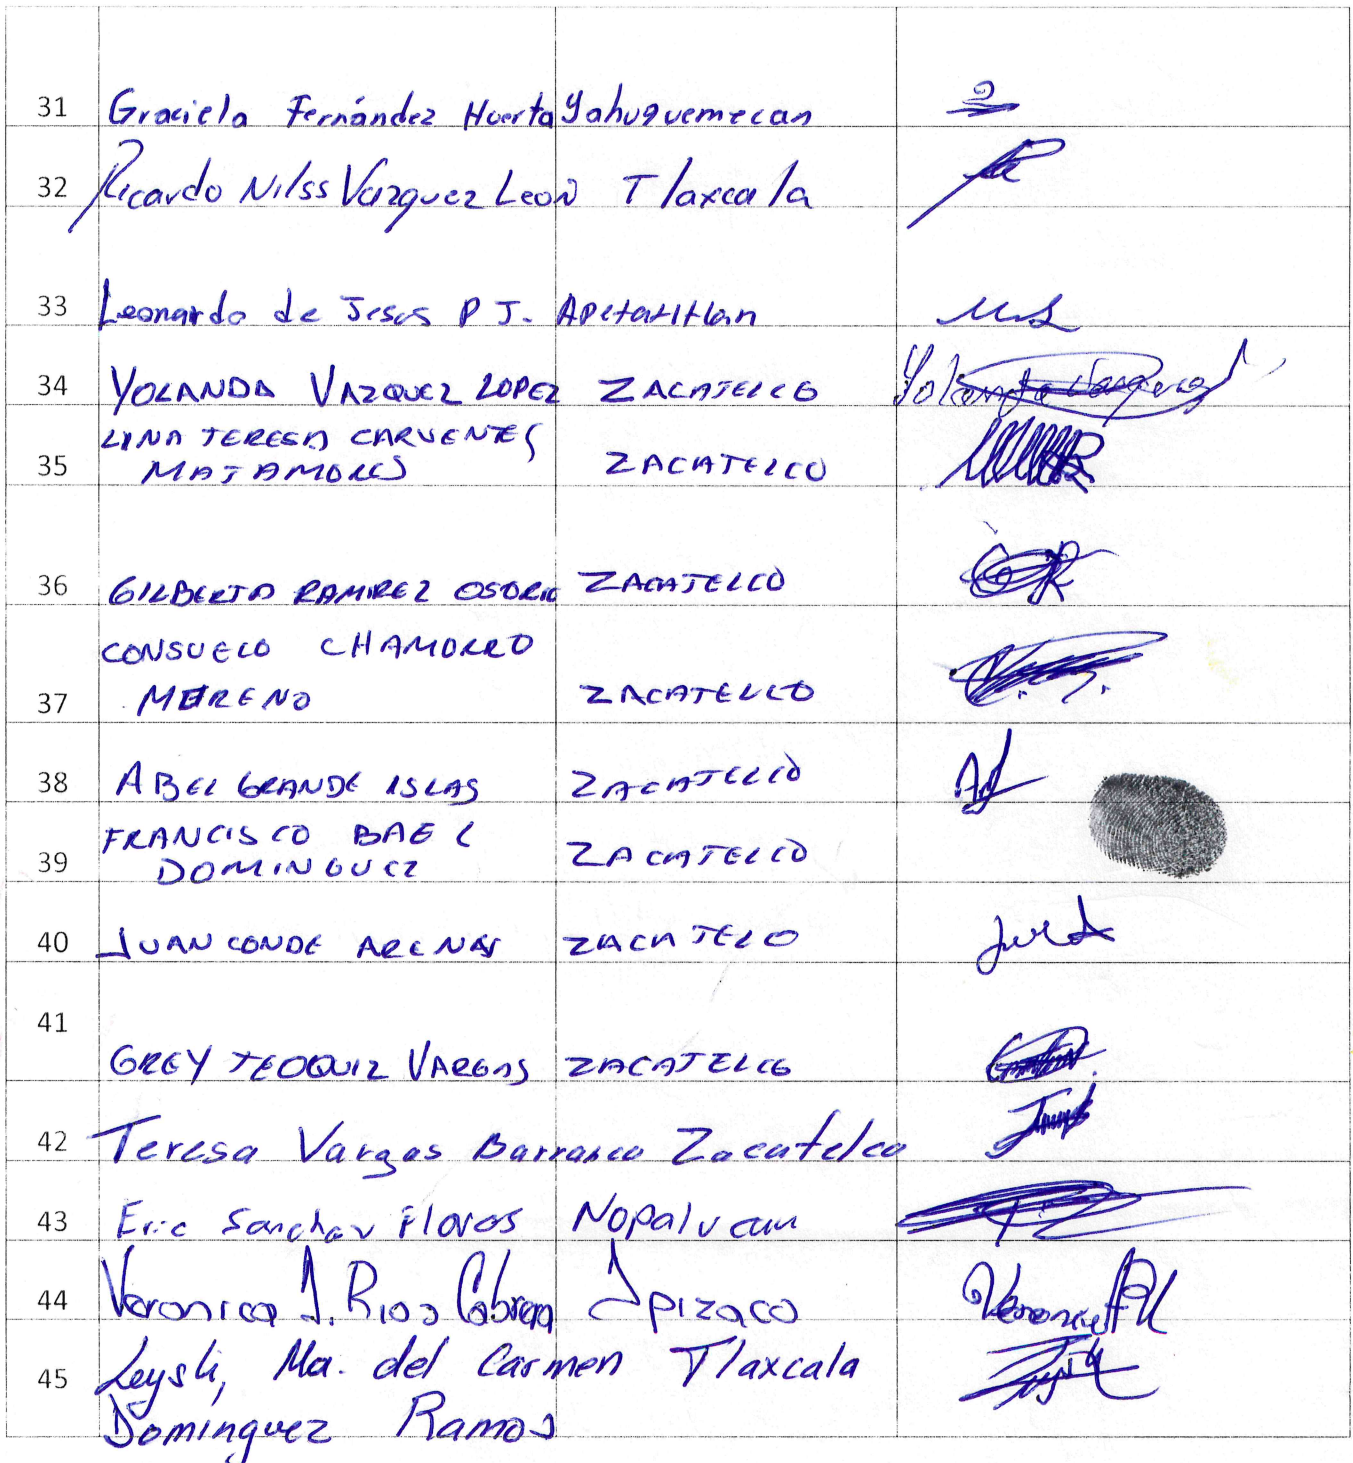 31 Graciela Fernández Huerta Yahuquemecan
32 Ricardo Nilss Vazquez Leon Tlaxcala
33 Leonardo de Jesus P J. Apetatitlan
34 YOLANDA VAZQUEZ LOPEZ ZACATELCO Yolanda Vazquez
LINA TERESA CARVENTES
35 MATAMOROS ZACATELCO
36 GILBERTO RAMIREZ OSORIO ZACATELCO
CONSUELO CHAMORRO
37 MORENO ZACATELCO
38 ABEL GRANDE ISLAS ZACATELCO
FRANCISCO BAEZ
39 DOMINGUEZ ZACATELCO
40 JUAN CONDE ARENAS ZACATELO
41
GREY TEOQUIZ VARGAS ZACATELCO
42 Teresa Vargas Barranco Zacatelco
43 Eric Sanchez Flores Nopalucan
44 Veronica J. Rios Cabrera Apizaco
45 Leysli, Ma. del Carmen Tlaxcala
Dominguez Ramos